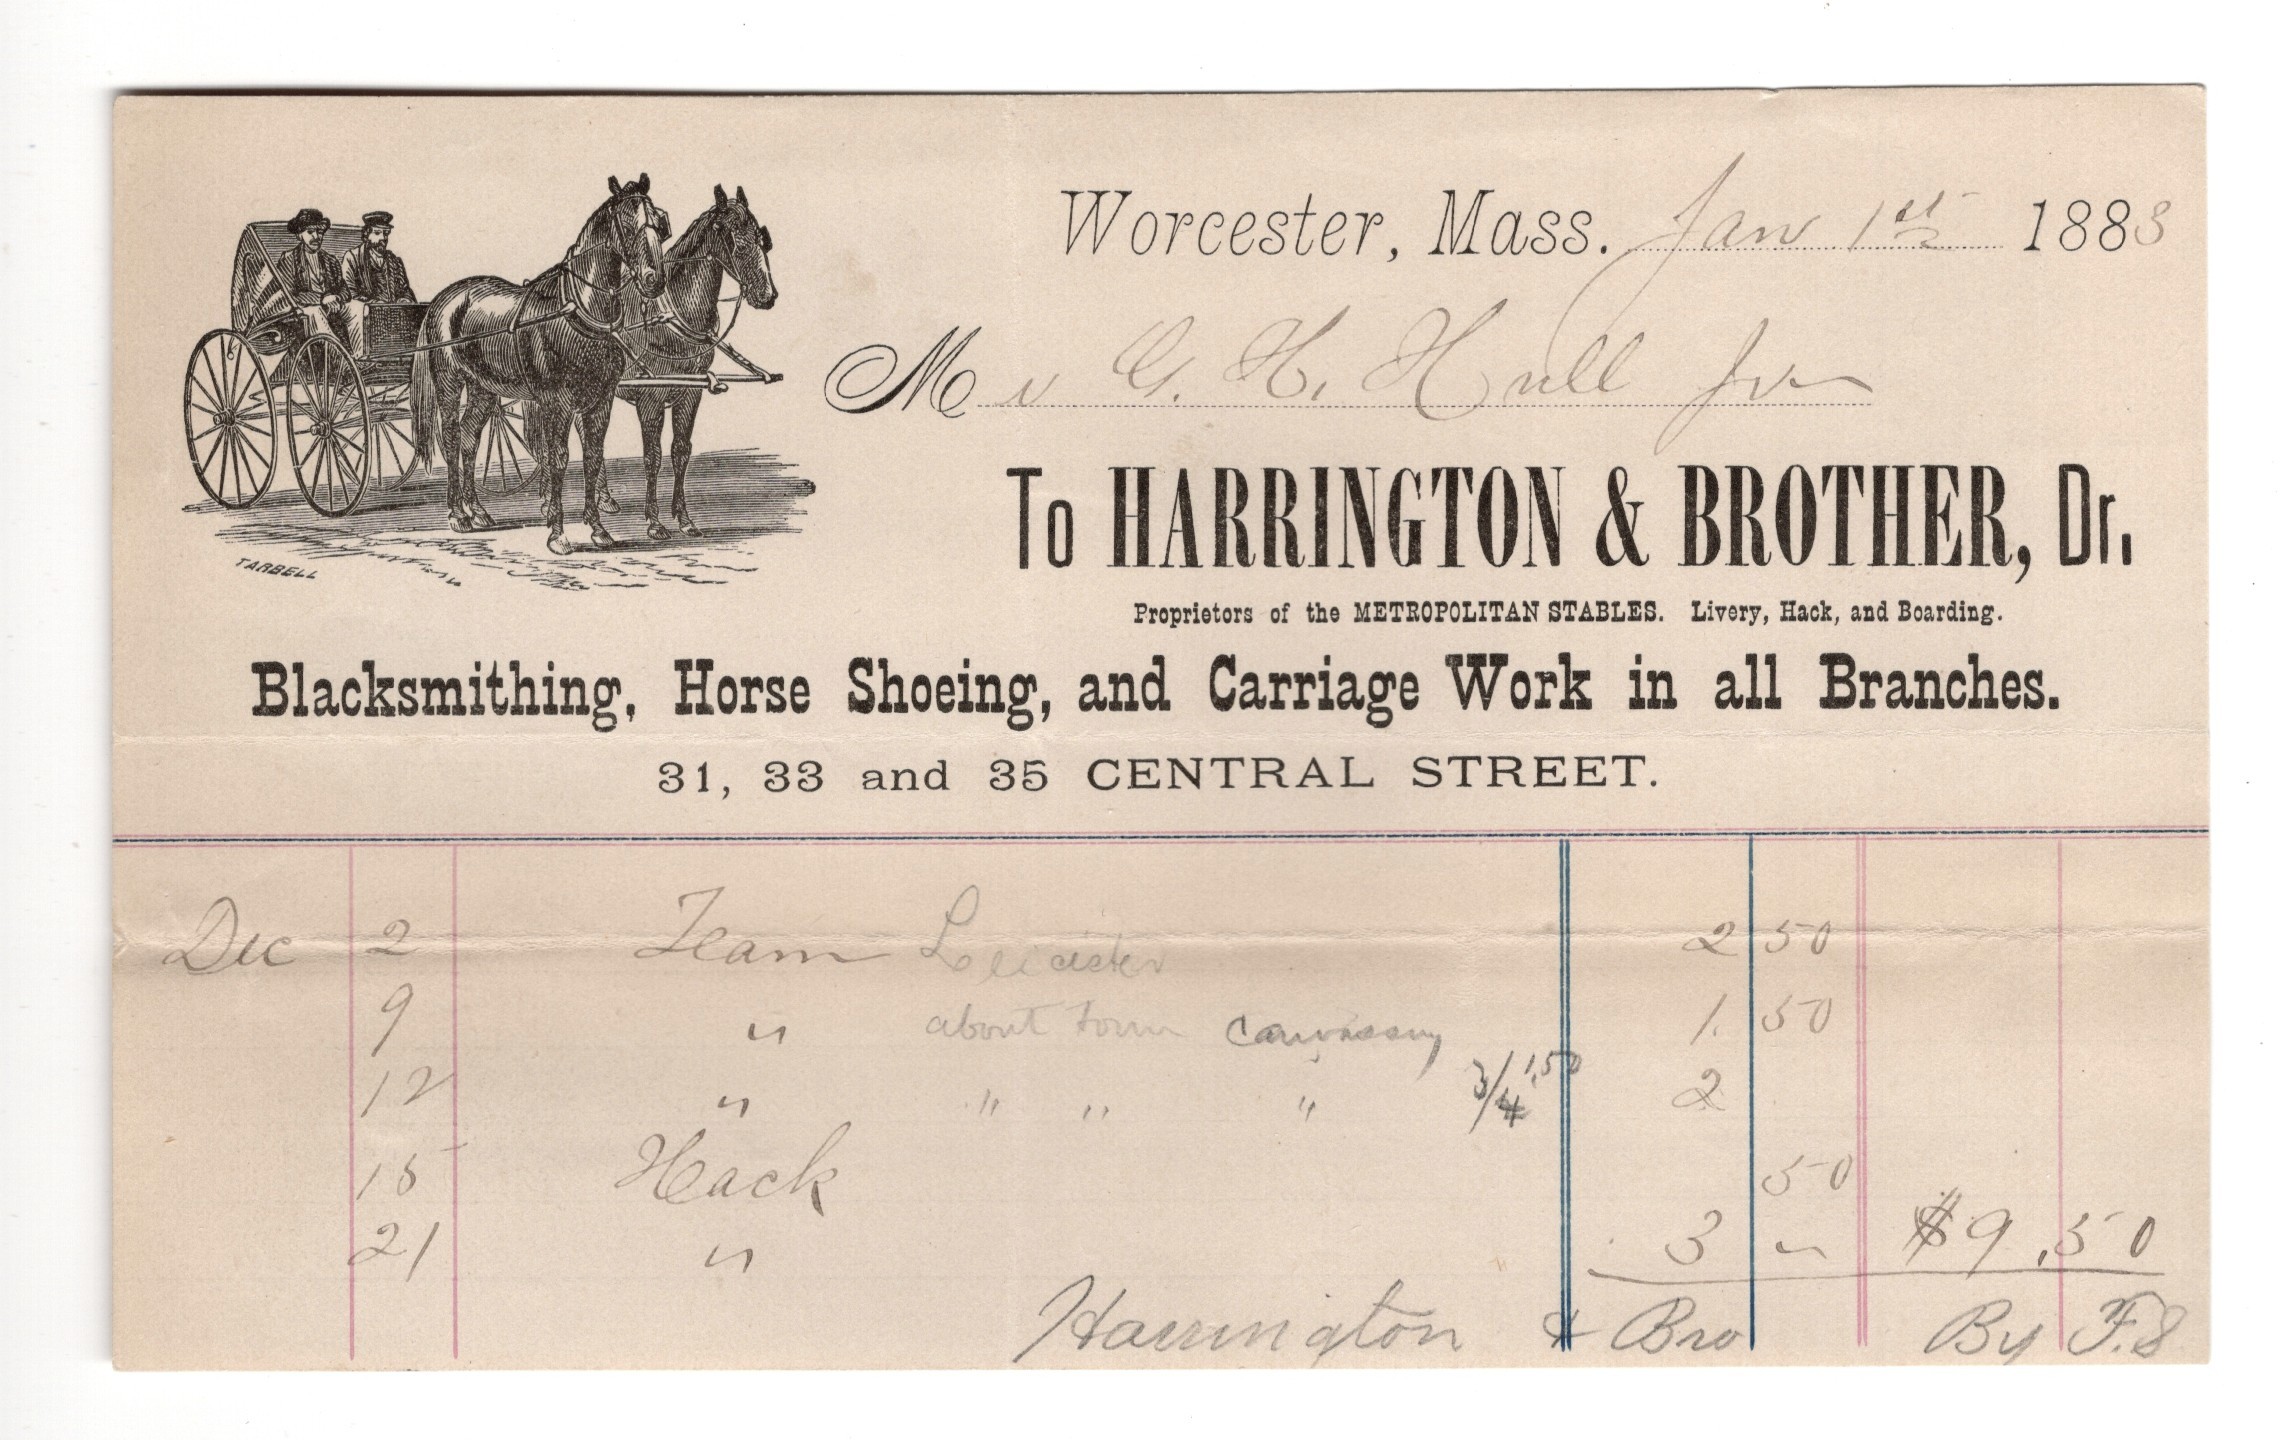 Worcester, Mass. Jan 1st 1883
Mr G. H. Hull Jr
To HARRINGTON & BROTHER, Dr.
Proprietors of the METROPOLITAN STABLES. Livery, Hack, and Boarding.
TARBELL
Blacksmithing, Horse Shoeing, and Carriage Work in all Branches.
31, 33 and 35 CENTRAL STREET.
Dec 2 Team Leicester 2 50
9 " about town canvassing 1. 50
12 " " " " 3/4 1.50 2
15 Hack 50
21 " 3 " $9.50
Harrington & Bro By F.S